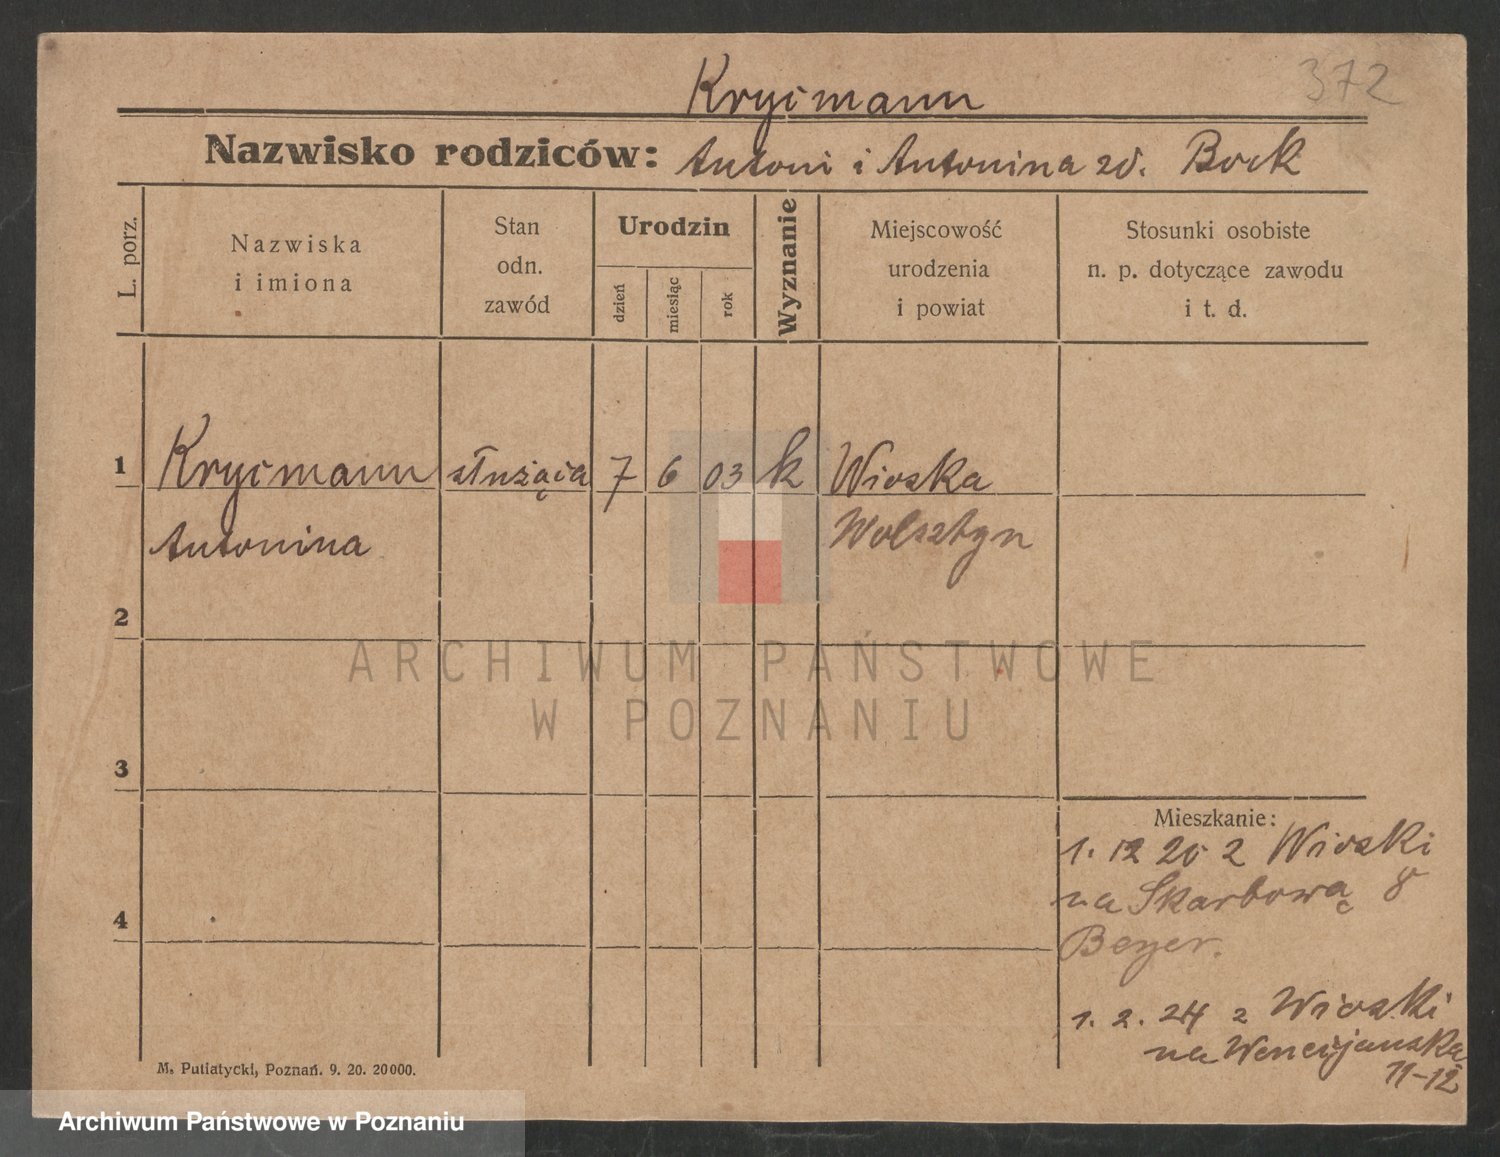 372
Krycmann
Nazwisko rodziców: Antoni i Antonina zd. Bock
L. porz.
Nazwiska
i imiona
Stan
odn.
zawód
Urodzin
dzień
miesiąc
rok
Wyznanie
Miejscowość
urodzenia
i powiat
Stosunki osobiste
n. p. dotyczące zawodu
i t. d.
1 Krycmann służąca 7 6 03 k Wioska
Antonina Wolsztyn
2
ARCHIWUM PAŃSTWOWE
W POZNANIU
3
Mieszkanie:
1. 12 20 z Wioski
na Skarbową 8
4
Beyer.
1. 2. 24 z Wioski
na Wenecjańską
11-12
M. Putiatycki, Poznań. 9. 20. 20000.
Archiwum Państwowe w Poznaniu